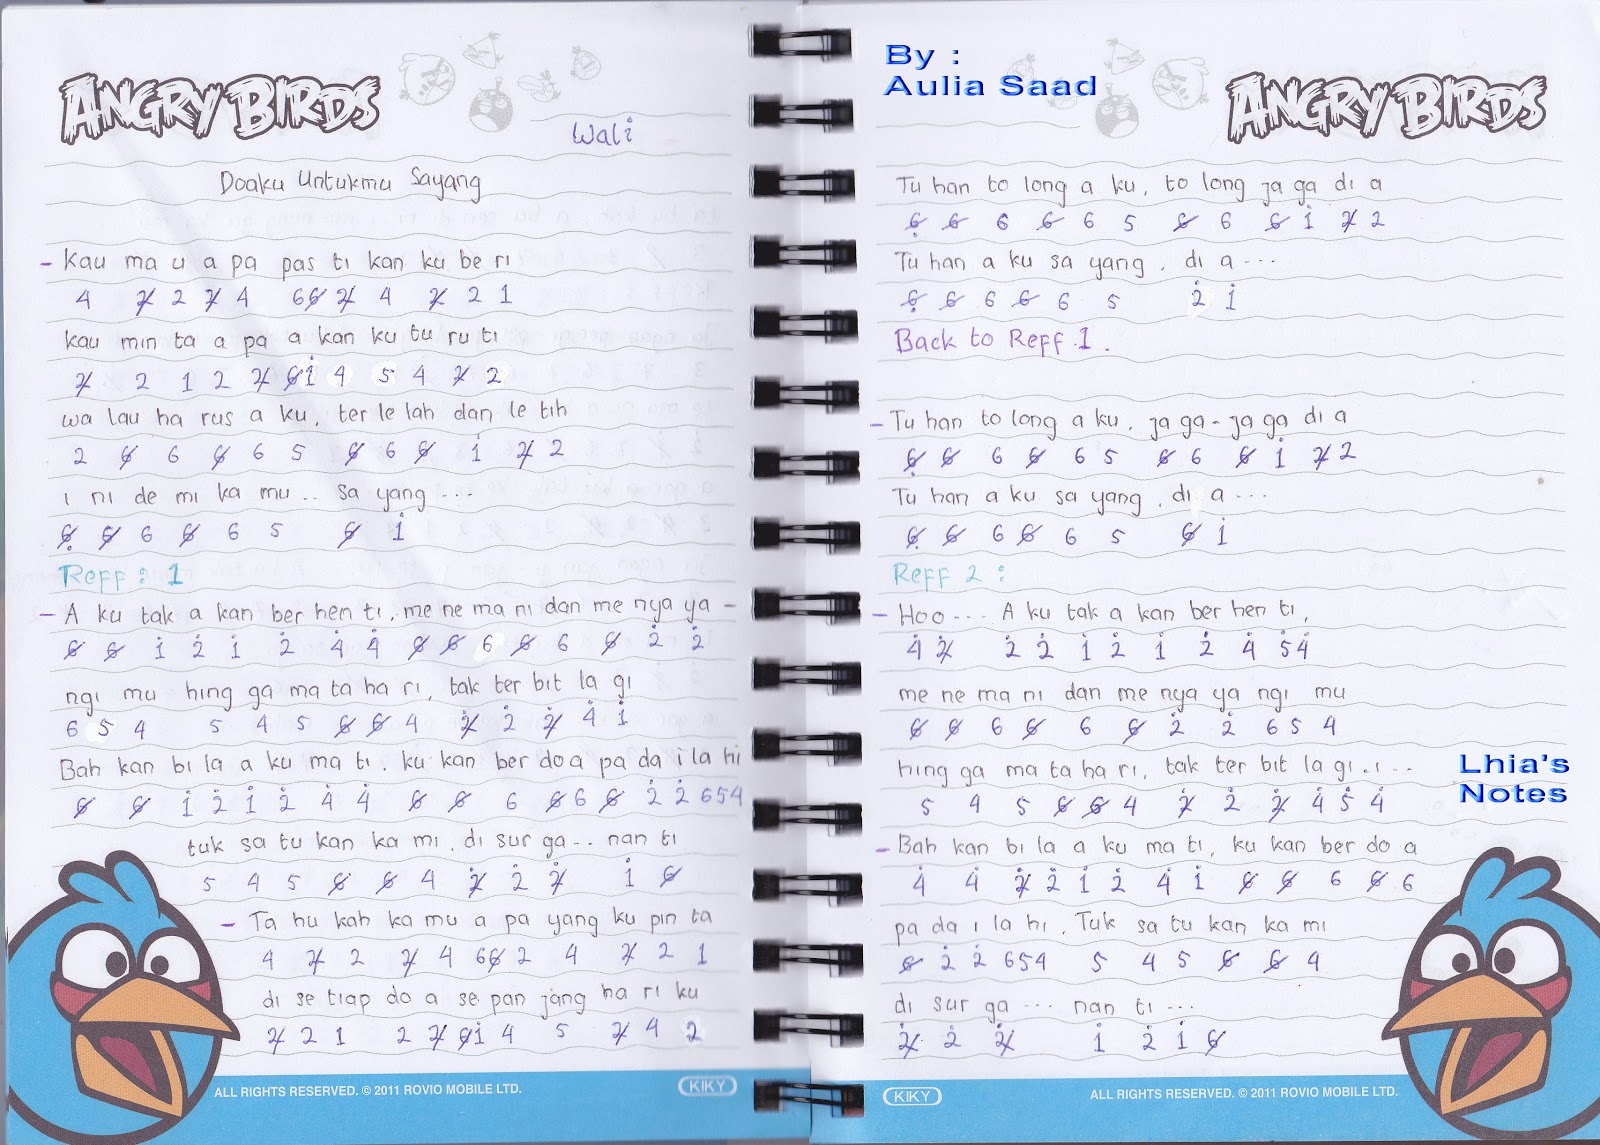 ANGRY BIRDS
Wali
Doaku Untukmu Sayang
- Kau ma u a pa pas ti kan ku be ri
4 2̸ 2 2̸ 4 6 6̸ 2̸ 4 2̸ 2 1
kau min ta a pa a kan ku tu ru ti
2̸ 2 1 2 2̸ 6̸ 1̇ 4 5 4 2̸ 2
wa lau ha rus a ku, ter le lah dan le tih
2 6̸ 6 6̸ 6 5 6̸ 6 6̸ 1̇ 2̸ 2
i ni de mi ka mu .. sa yang ...
6̸̣ 6̸ 6 6̸ 6 5 6̸ 1̇
Reff : 1
- A ku tak a kan ber hen ti, me ne ma ni dan me nya ya -
6̸ 6̸ 1̇ 2̇ 1̇ 2̇ 4̇ 4̇ 6̸ 6̸ 6 6̸ 6 6̸ 2̇ 2̇
ngi mu hing ga ma ta ha ri, tak ter bit la gi
6 5 4 5 4 5 6̸ 6̸ 4 2̸̇ 2̇ 2̸̇ 4̇ 1̇
Bah kan bi la a ku ma ti. ku kan ber do a pa da i la hi
6̸ 6̸ 1̇ 2̇ 1̇ 2̇ 4̇ 4̇ 6̸ 6̸ 6 6̸ 6 6̸ 2̇ 2̇ 6 5 4
tuk sa tu kan ka mi. di sur ga .. nan ti
5 4 5 6̸ 6̸ 4 2̸̇ 2̇ 2̸̇ 1̇ 6̸
- Ta hu kah ka mu a pa yang ku pin ta
4 2̸ 2 2̸ 4 6 6̸ 2 4 2̸ 2 1
di se tiap do a se pan jang ha ri ku
2̸ 2 1 2 2̸ 6̸ 1̇ 4 5 2̸ 4 2
ALL RIGHTS RESERVED. © 2011 ROVIO MOBILE LTD.
KIKY
By :
Aulia Saad
ANGRY BIRDS
Tu han to long a ku, to long ja ga di a
6̸̣ 6̸ 6 6̸ 6 5 6̸ 6 6̸ 1̇ 2̸ 2
Tu han a ku sa yang . di a ...
6̸̣ 6̸ 6 6̸ 6 5 2̇ 1̇
Back to Reff 1 .
- Tu han to long a ku, ja ga - ja ga di a
6̸̣ 6̸ 6 6̸ 6 5 6̸ 6 6̸ 1̇ 2̸ 2
Tu han a ku sa yang . di a ...
6̸̣ 6̸ 6 6̸ 6 5 6̸ 1̇
Reff 2 :
- Hoo .... A ku tak a kan ber hen ti,
4̇ 2̸̇ 2̇ 2̇ 1̇ 2̇ 1̇ 2̇ 4̇ 5̇ 4̇
me ne ma ni dan me nya ya ngi mu
6̸ 6̸ 6 6̸ 6 6̸ 2̇ 2̇ 6 5 4
hing ga ma ta ha ri, tak ter bit la gi . i ..
5 4 5 6̸ 6̸ 4 2̸̇ 2̇ 2̸̇ 4̇ 5̇ 4̇
Lhia's
Notes
- Bah kan bi la a ku ma ti, ku kan ber do a
4̇ 4̇ 2̸̇ 2̇ 1̇ 2̇ 4̇ 1̇ 6̸ 6̸ 6 6̸ 6
pa da i la hi, Tuk sa tu kan ka mi
6̸ 2̇ 2̇ 6 5 4 5 4 5 6̸ 6̸ 4
di sur ga ... nan ti ...
2̸̇ 2̇ 2̸̇ 1̇ 2̇ 1̇ 6̸
KIKY
ALL RIGHTS RESERVED. © 2011 ROVIO MOBILE LTD.